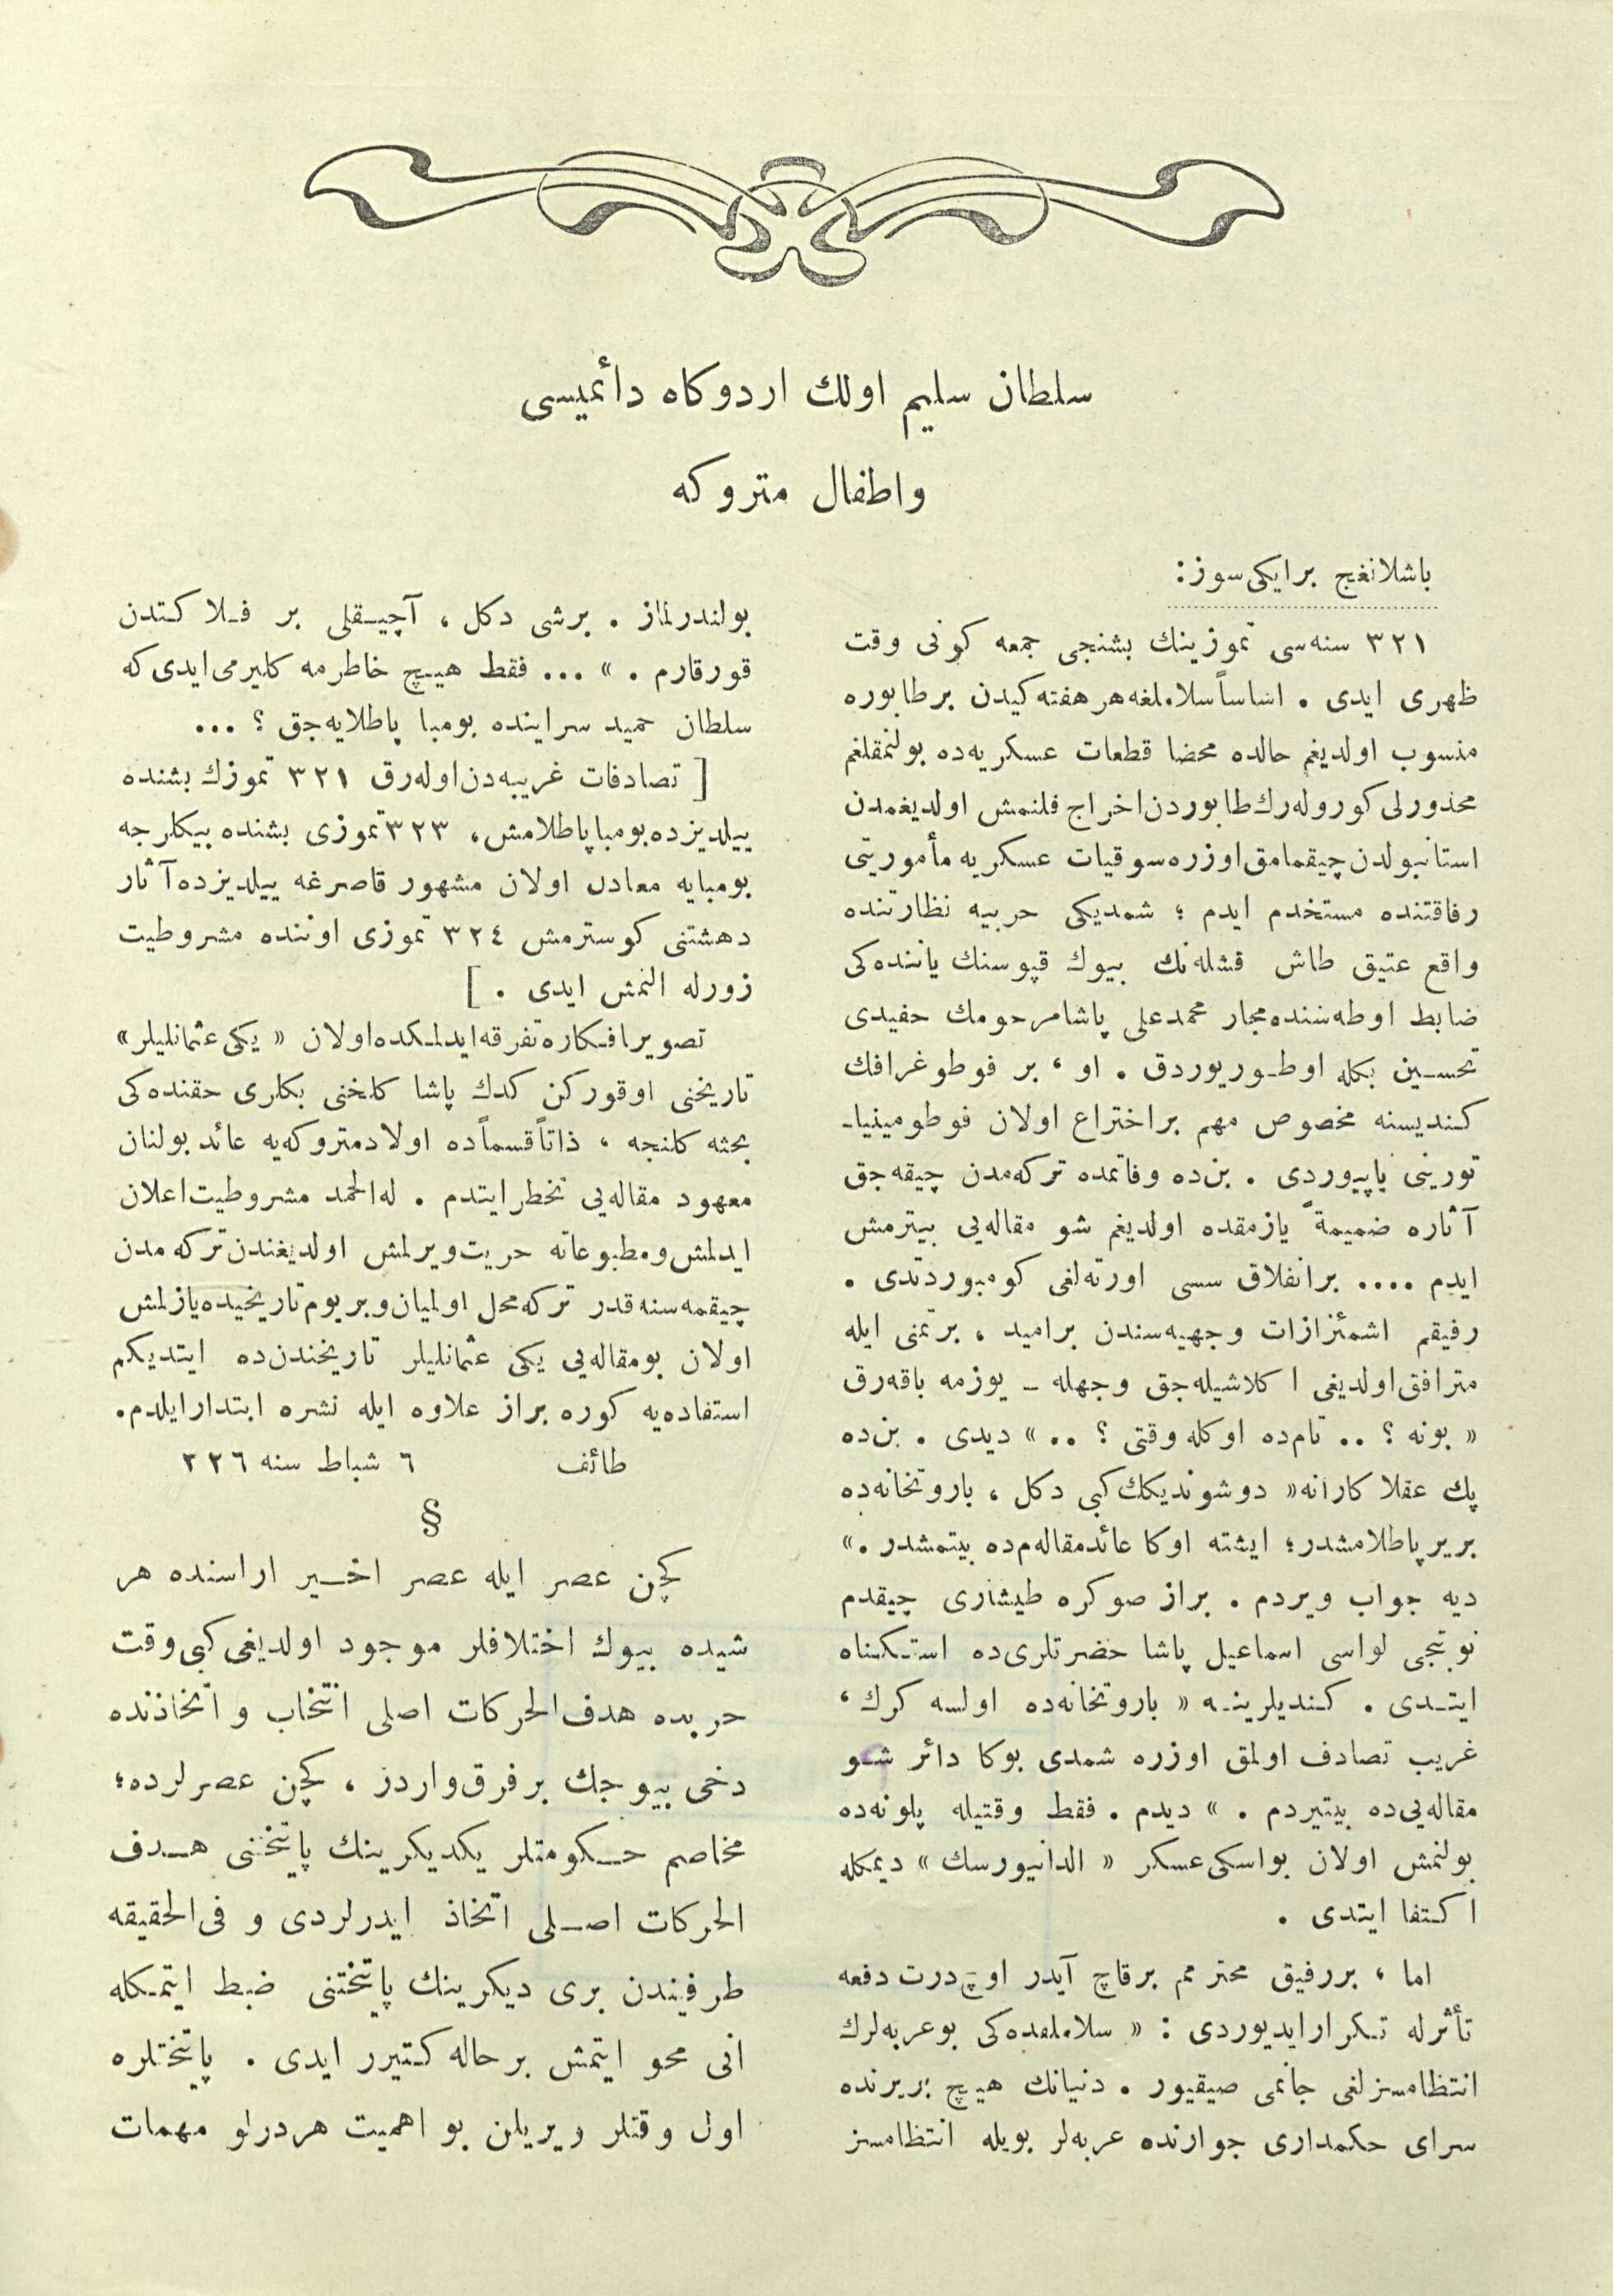 سلطان سليم اولك اردوكاه دائميسی
واطفال متروكه
باشلانغج برايكی سوز:
٣٢١ سنه‌سی تموزينك بشنجی جمعه كونی وقت
ظهری ايدی . اساساً سلاملغه هر هفته كيدن بر طابوره
منسوب اولديغم حالده محضا قطعات عسكريه‌ده بولنمقلغم
محذورلی كوروله‌رك طابوردن اخراج قلنمش اولديغمدن
استانبولدن چيقمامق اوزره سوقيات عسكريه مأموريتی
رفاقتنده مستخدم ايدم ؛ شمديكی حربيه نظارتنده
واقع عتيق طاش قشله‌نك بيوك قپوسنك ياننده‌كی
ضابط اوطه‌سنده مجار محمد علی پاشا مرحومك حفيدی
تحسين بكله اوطوريوردق . او ، بر فوطوغرافك
كنديسنه مخصوص مهم بر اختراع اولان فوطومينيا-
تورينی ياپييوردی . بن‌ده وفاتمده تركه‌مدن چيقه‌جق
آثاره ضميمةً يازمقده اولديغم شو مقاله‌یی بيترمش
ايدم .... بر انفلاق سسی اورته‌لغی كومبوردتدی .
رفيقم اشمئزازات وجهيه‌سندن بر اميد ، بر تمنی ايله
مترافق اولديغی اكلاشيله‌جق وجهله ـ يوزمه باقه‌رق
« بونه ؟ .. تام‌ده اوكله وقتی ؟ .. » ديدی . بن‌ده
پك عقلا كارانه « دوشونديكك كبی دكل ، باروتخانه‌ده
بر ير پاطلامشدر ؛ ايشته اوكا عائد مقاله‌م‌ده بيتمشدر . »
ديه جواب ويردم . براز صوكره طيشاری چيقدم
نوبتجی لواسی اسماعيل پاشا حضرتلری‌ده استكناه
ايتدی . كنديلرينه « باروتخانه‌ده اولسه كرك ،
غريب تصادف اولمق اوزره شمدی بوكا دائر شو
مقاله‌یی‌ده بيتيردم . » ديدم . فقط وقتيله پلونه‌ده
بولنمش اولان بو اسكی عسكر « الدانيورسك » ديمكله
اكتفا ايتدی .
اما ، بر رفيق محترمم برقاچ آيدر اوچ درت دفعه
تأثرله تكرار ايديوردی : « سلاملقده‌كی بو عربه‌لرك
انتظامسزلغی جانمی صيقيور . دنيانك هيچ بر يرنده
سرای حكمداری جوارنده عربه‌لر بويله انتظامسز
بولندرلماز . برشی دكل ، آچيقلی بر فلاكتدن
قورقارم . » ... فقط هيچ خاطرمه كليرمی ايدی كه
سلطان حميد سراينده بومبا پاطلايه‌جق ؟ ...
[ تصادفات غريبه‌دن اوله‌رق ٣٢١ تموزك بشنده
ييلديزده بومبا پاطلامش ، ٣٢٣ تموزی بشنده بيكلرجه
بومبايه معادل اولان مشهور قاصرغه ييلديزده آثار
دهشتنی كوسترمش ٣٢٤ تموزی اوننده مشروطيت
زورله النمش ايدی . ]
تصوير افكاره تفرقه ايدلمكده اولان « يكی عثمانليلر »
تاريخنی اوقوركن كدك پاشا كلخنی بكلری حقنده‌كی
بحثه كلنجه ، ذاتاً قسماً ده اولاد متروكه‌يه عائد بولنان
معهود مقاله‌یی تخطر ايتدم . له‌الحمد مشروطيت اعلان
ايدلمش و مطبوعاته حريت ويرلمش اولديغندن تركه مدن
چيقمه‌سنه قدر تركه محل اولميان و بر يوم تاريخيده يازلمش
اولان بو مقاله‌یی يكی عثمانليلر تاريخندن‌ده ايتديكم
استفاده‌يه كوره براز علاوه ايله نشره ابتدار ايلدم .
طائف ٦ شباط سنه ٣٢٦
§
كچن عصر ايله عصر اخير اراسنده هر
شيده بيوك اختلافلر موجود اولديغی كبی وقت
حربده هدف الحركات اصلی انتخاب و اتخاذنده
دخی بيوجك بر فرق واردر ، كچن عصرلرده ؛
مخاصم حكومتلر يكديكرينك پايتختنی هدف
الحركات اصلی اتخاذ ايدرلردی و فی الحقيقه
طرفيندن بری ديكرينك پايتختنی ضبط ايتمكله
انی محو ايتمش بر حاله كتيرر ايدی . پايتختلره
اول وقتلر ويريلن بو اهميت هردرلو مهمات